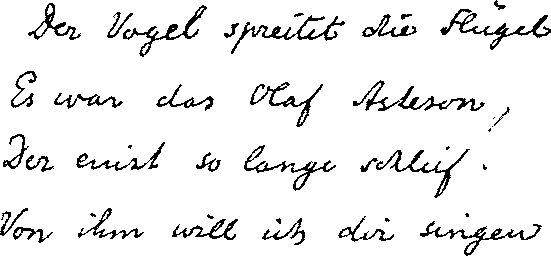 Der Vogel spreitet die Flügel
Es war das Olaf Asteson,
Der einst so lange schlief.
Von ihm will ich dir singen